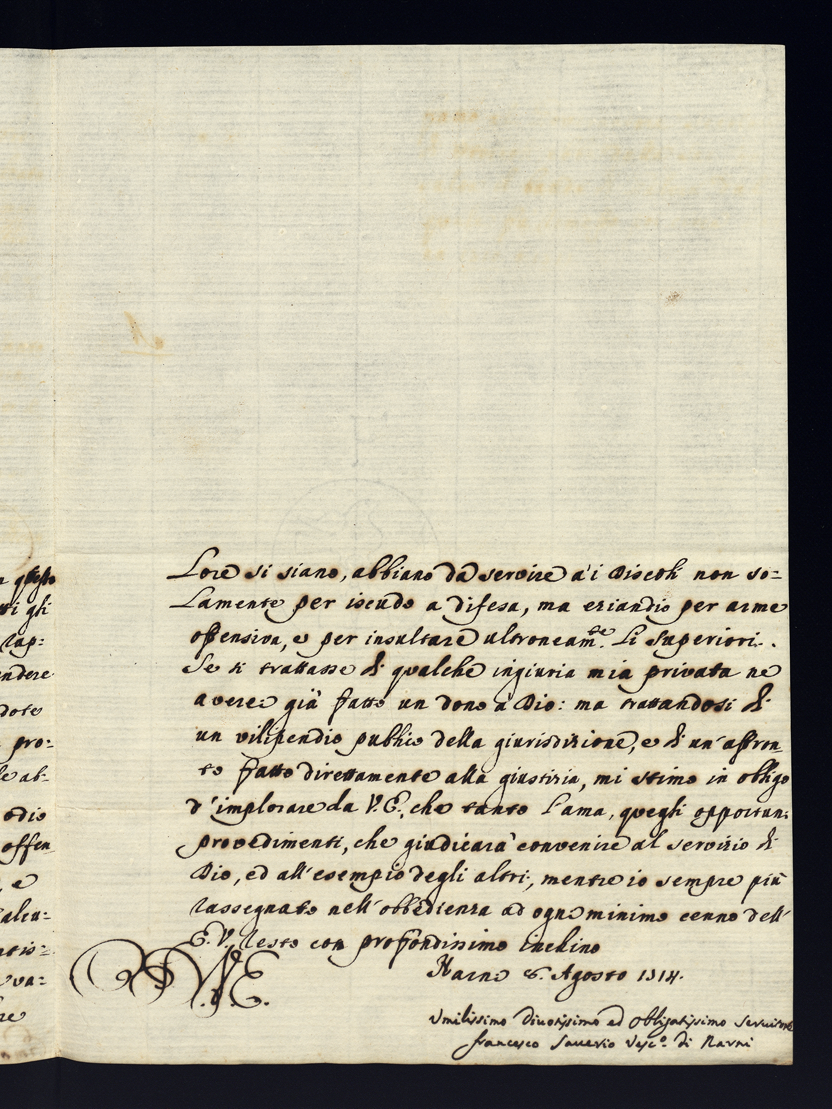 n questo
ti gli
rap:
ndere
dote
pro:
le ab-
odio
offen
, e
alcu-
va:
re
Lore si siano, abbiano da servire a'i Discoli non so=
Lamente per iscudo a difesa, ma eziandio per arme
offensiva, e per insultare ultroneam.te Li Superiori.
Se si trattasse di qualche ingiuria mia privata ne
averei già fatto un dono à Dio: ma trattandosi di
un vilipendio publico della giurisdizione, e di un' affron
to fatto direttamente alla giustizia, mi stimo in obligo
d'implorare da V. E., che tanto L'ama, quegli opportuni
provedimenti, che giudicarà convenire al servizio di
Dio, ed all'esempio degli altri, mentre io sempre più
rassegnato nell'obbedienza ad ogni minimo cenno dell'
E. V. resto con profondissimo inchino
D. V. E.
Narni 8. Agosto 1714.
Umilissimo Divotissimo ed Obligatissimo Servitore
Francesco Saverio Vesc.o di Narni